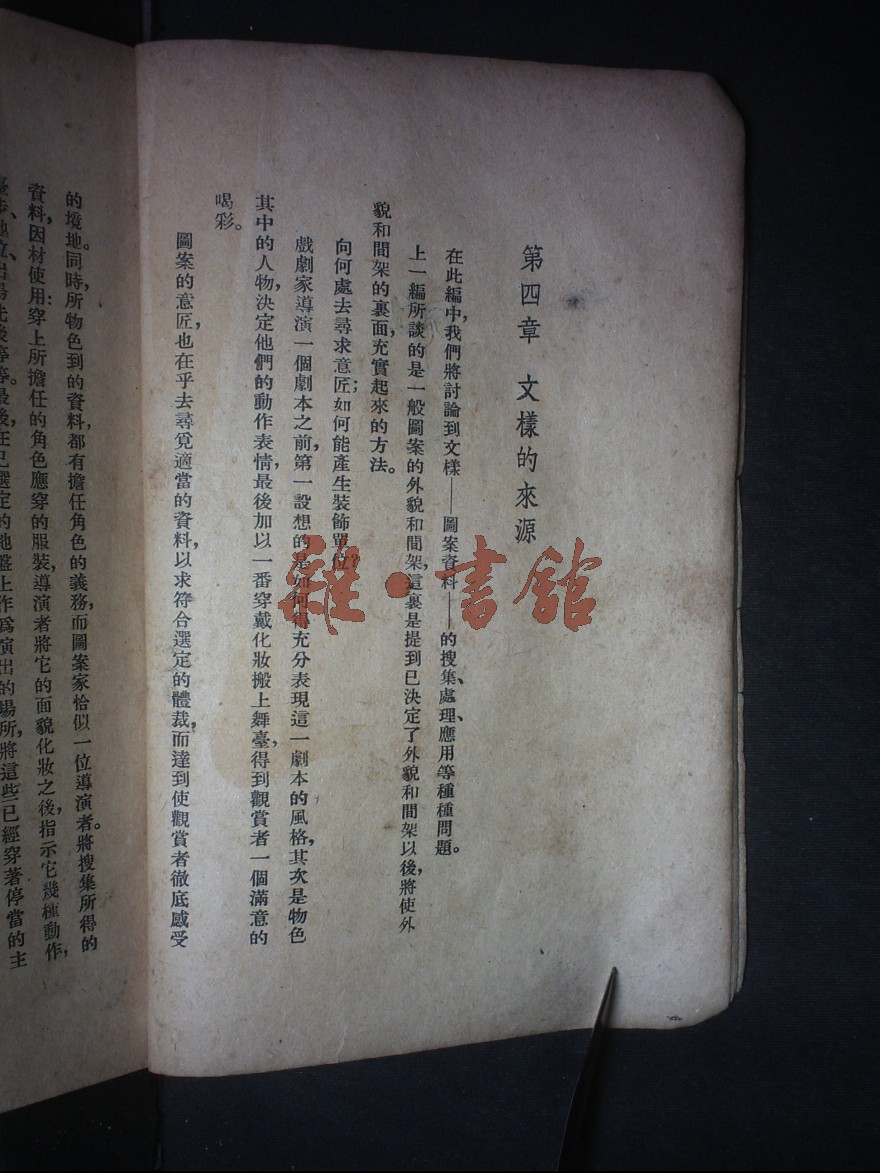 第四章 文樣的來源
在此編中，我們將討論到文樣——圖案資料——的搜集、處理、應用等種種問題。
上一編所談的是一般圖案的外貌和間架，這裏是提到已決定了外貌和間架以後，將使外
貌和間架的裏面充實起來的方法。
向何處去尋求意匠；如何能產生裝飾單位？
戲劇家導演一個劇本之前，第一設想的是如何得充分表現這一劇本的風格，其次是物色
其中的人物，決定他們的動作表情，最後加以一番穿戴化妝搬上舞臺，得到觀賞者一個滿意的
喝彩。
圖案的意匠，也在乎去尋覓適當的資料，以求符合選定的體裁，而達到使觀賞者徹底感受
的境地。同時，所物色到的資料，都有擔任角色的義務，而圖案家恰似一位導演者。將搜集所得的
資料，因材使用：穿上所擔任的角色應穿的服裝，導演者將它的面貌化妝之後，指示它幾種動作，
地位、出場先後等等。最後，在已選定的地盤上作爲演出的場所，將這些已經穿著停當的主
雜·書館